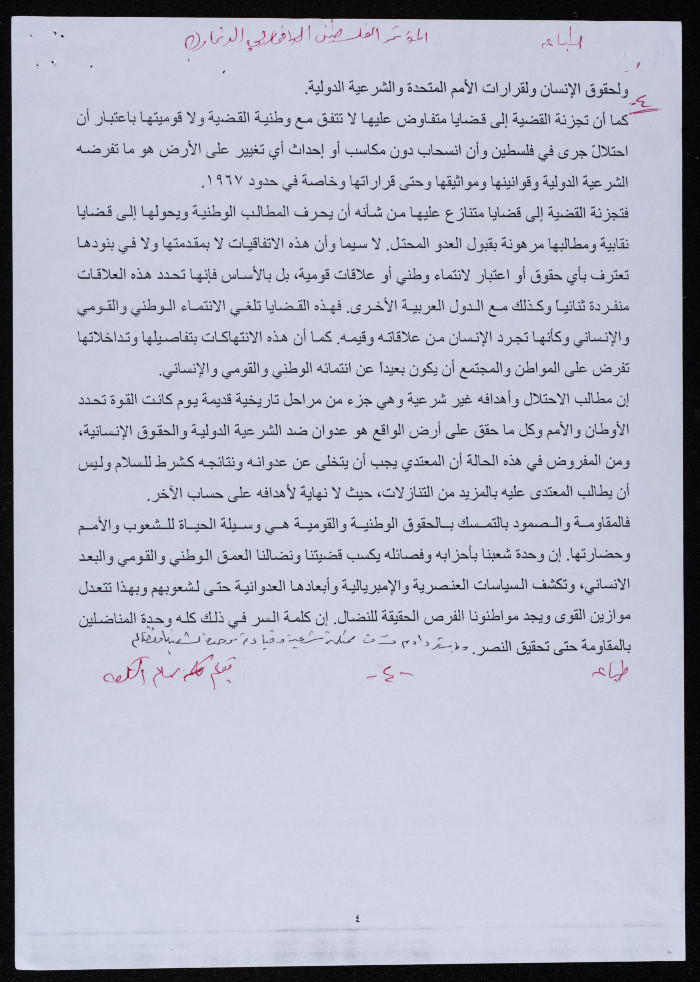 طباعة
المؤتمر الفلسطيني الدنمارك
٤-
ولحقوق الإنسان ولقرارات الأمم المتحدة والشرعية الدولية.
كما أن تجزئة القضية إلى قضايا متفاوض عليها لا تتفق مع وطنية القضية ولا قوميتها باعتبار أن
احتلالً جرى في فلسطين وأن انسحاب دون مكاسب أو إحداث أي تغيير على الأرض هو ما تفرضه
الشرعية الدولية وقوانينها ومواثيقها وحتى قراراتها وخاصة في حدود ١٩٦٧.
فتجزئة القضية إلى قضايا متنازع عليها من شأنه أن يحرف المطالب الوطنية ويحولها إلى قضايا
نقابية ومطالبها مرهونة بقبول العدو المحتل. لا سيما وأن هذه الاتفاقيات لا بمقدمتها ولا في بنودها
تعترف بأي حقوق أو اعتبار لانتماء وطني أو علاقات قومية، بل بالأساس فإنها تحدد هذه العلاقات
منفردة ثنائياً وكذلك مع الدول العربية الأخرى. فهذه القضايا تلغي الانتماء الوطني والقومي
والإنساني وكأنها تجرد الإنسان من علاقاته وقيمه. كما أن هذه الانتهاكات بتفاصيلها وتداخلاتها
تفرض على المواطن والمجتمع أن يكون بعيداً عن انتمائه الوطني والقومي والإنساني.
إن مطالب الاحتلال وأهدافه غير شرعية وهي جزء من مراحل تاريخية قديمة يوم كانت القوة تحدد
الأوطان والأمم وكل ما حقق على أرض الواقع هو عدوان ضد الشرعية الدولية والحقوق الإنسانية،
ومن المفروض في هذه الحالة أن المعتدي يجب أن يتخلى عن عدوانه ونتائجه كشرط للسلام وليس
أن يطالب المعتدى عليه بالمزيد من التنازلات، حيث لا نهاية لأهدافه على حساب الآخر.
فالمقاومة والصمود بالتمسك بالحقوق الوطنية والقومية هي وسيلة الحياة للشعوب والأمم
وحضارتها. إن وحدة شعبنا بأحزابه وفصائله يكسب قضيتنا ونضالنا العمق الوطني والقومي والبعد
الانساني، وتكشف السياسات العنصرية والإمبريالية وأبعادها العدوانية حتى لشعوبهم وبهذا تتعدل
موازين القوى ويجد مواطنونا الفرص الحقيقة للنضال. إن كلمة السر في ذلك كله وحدة المناضلين
بالمقاومة حتى تحقيق النصر. ممثلة شرعية وقيادة موحدة لشعبنا
طباعة
-٤-
بسام الكعبي
٤